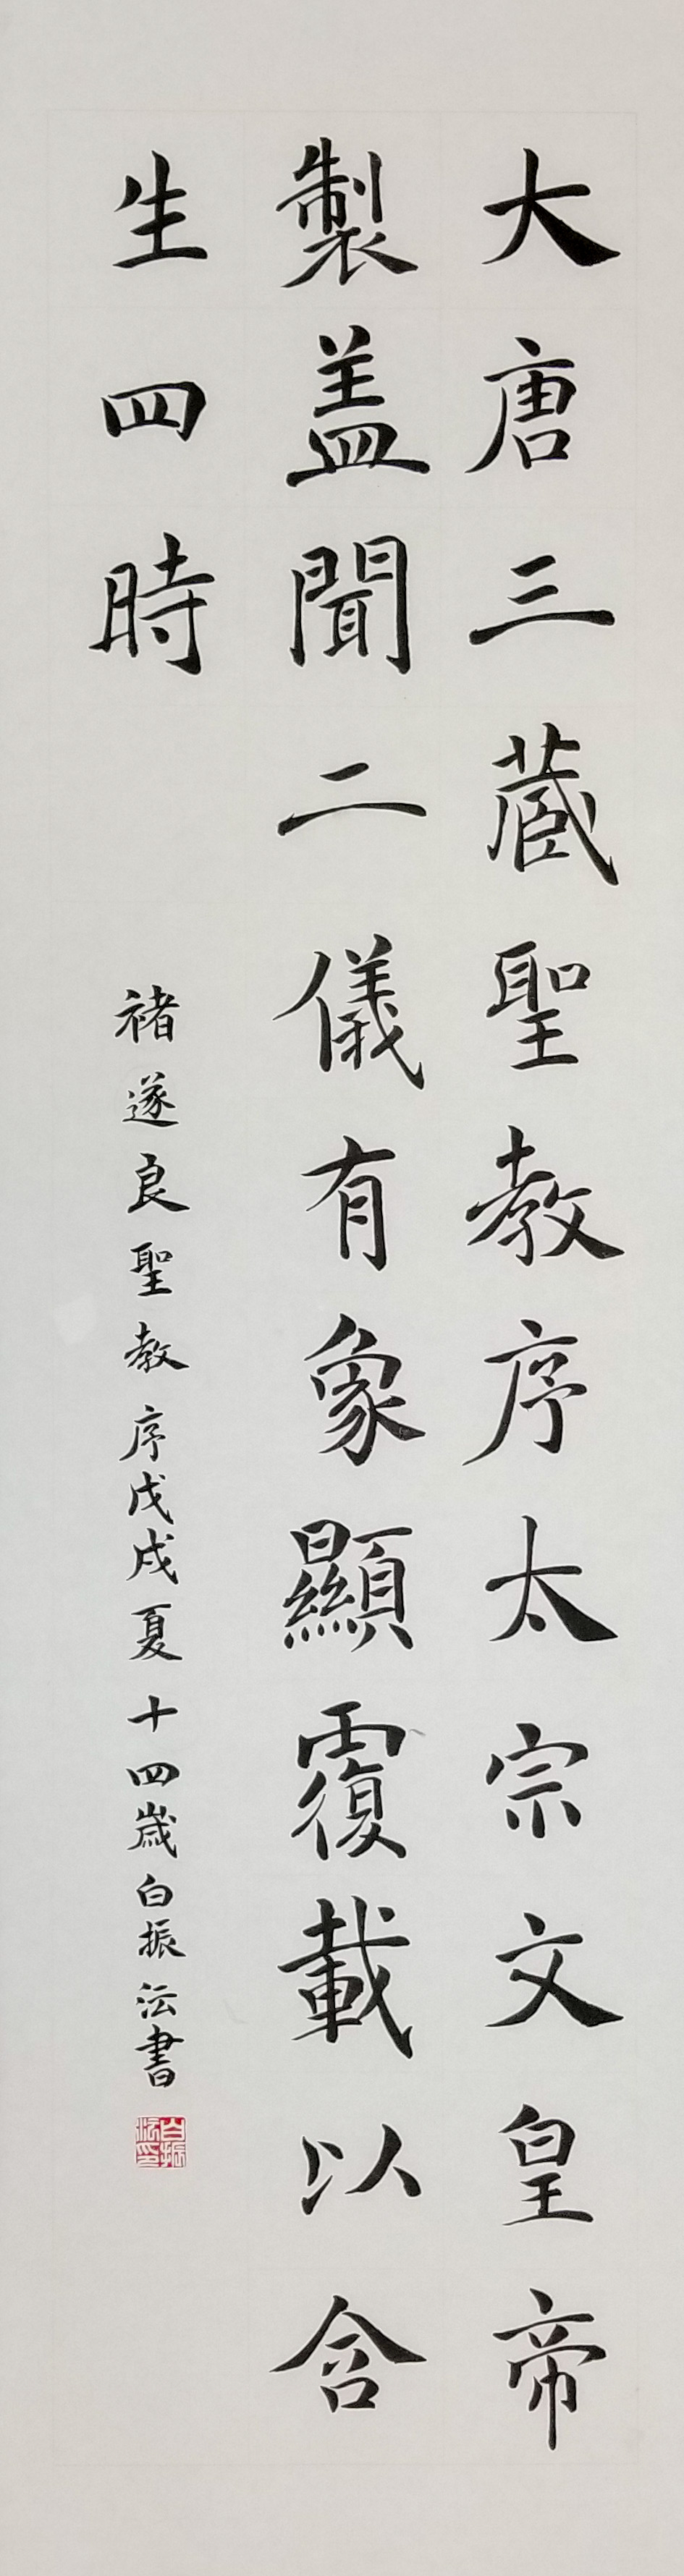 大唐三蔵聖教序太宗文皇帝
製盖聞二儀有象顯覆載以含
生四時
褚遂良聖教序戊戌夏十四歳白振沄書
白振沄印